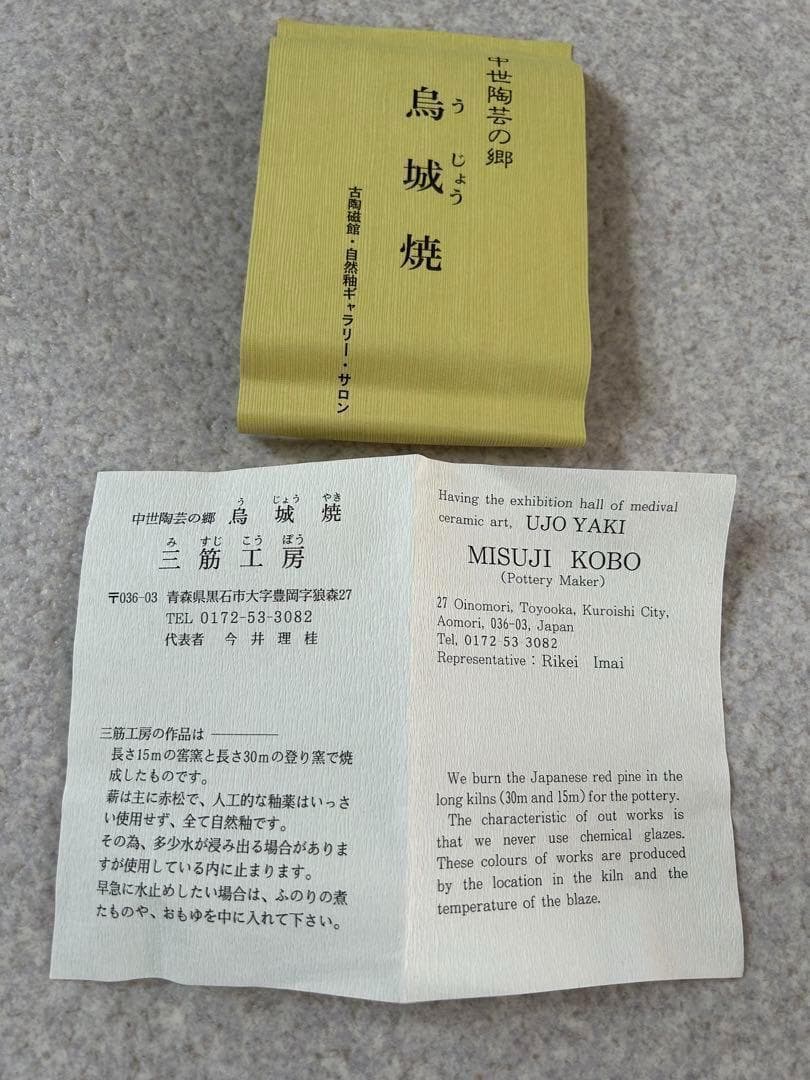 中世陶芸の郷
烏城焼
う じょう
古陶磁館・自然釉ギャラリー・サロン
う じょう やき
中世陶芸の郷 烏城焼
み すじ こう ぼう
三筋工房
〒036-03 青森県黒石市大字豊岡字狼森27
TEL 0172-53-3082
代表者 今井理桂
三筋工房の作品は ――――
長さ15mの窖窯と長さ30mの登り窯で焼
成したものです。
薪は主に赤松で、人工的な釉薬はいっさ
い使用せず、全て自然釉です。
その為、多少水が浸み出る場合がありま
すが使用している内に止まります。
早急に水止めしたい場合は、ふのりの煮
たものや、おもゆを中に入れて下さい。
Having the exhibition hall of medival
ceramic art, UJO YAKI
MISUJI KOBO
(Pottery Maker)
27 Oinomori, Toyooka, Kuroishi City,
Aomori, 036-03, Japan
Tel, 0172 53 3082
Representative : Rikei Imai
We burn the Japanese red pine in the
long kilns (30m and 15m) for the pottery.
The characteristic of out works is
that we never use chemical glazes.
These colours of works are produced
by the location in the kiln and the
temperature of the blaze.